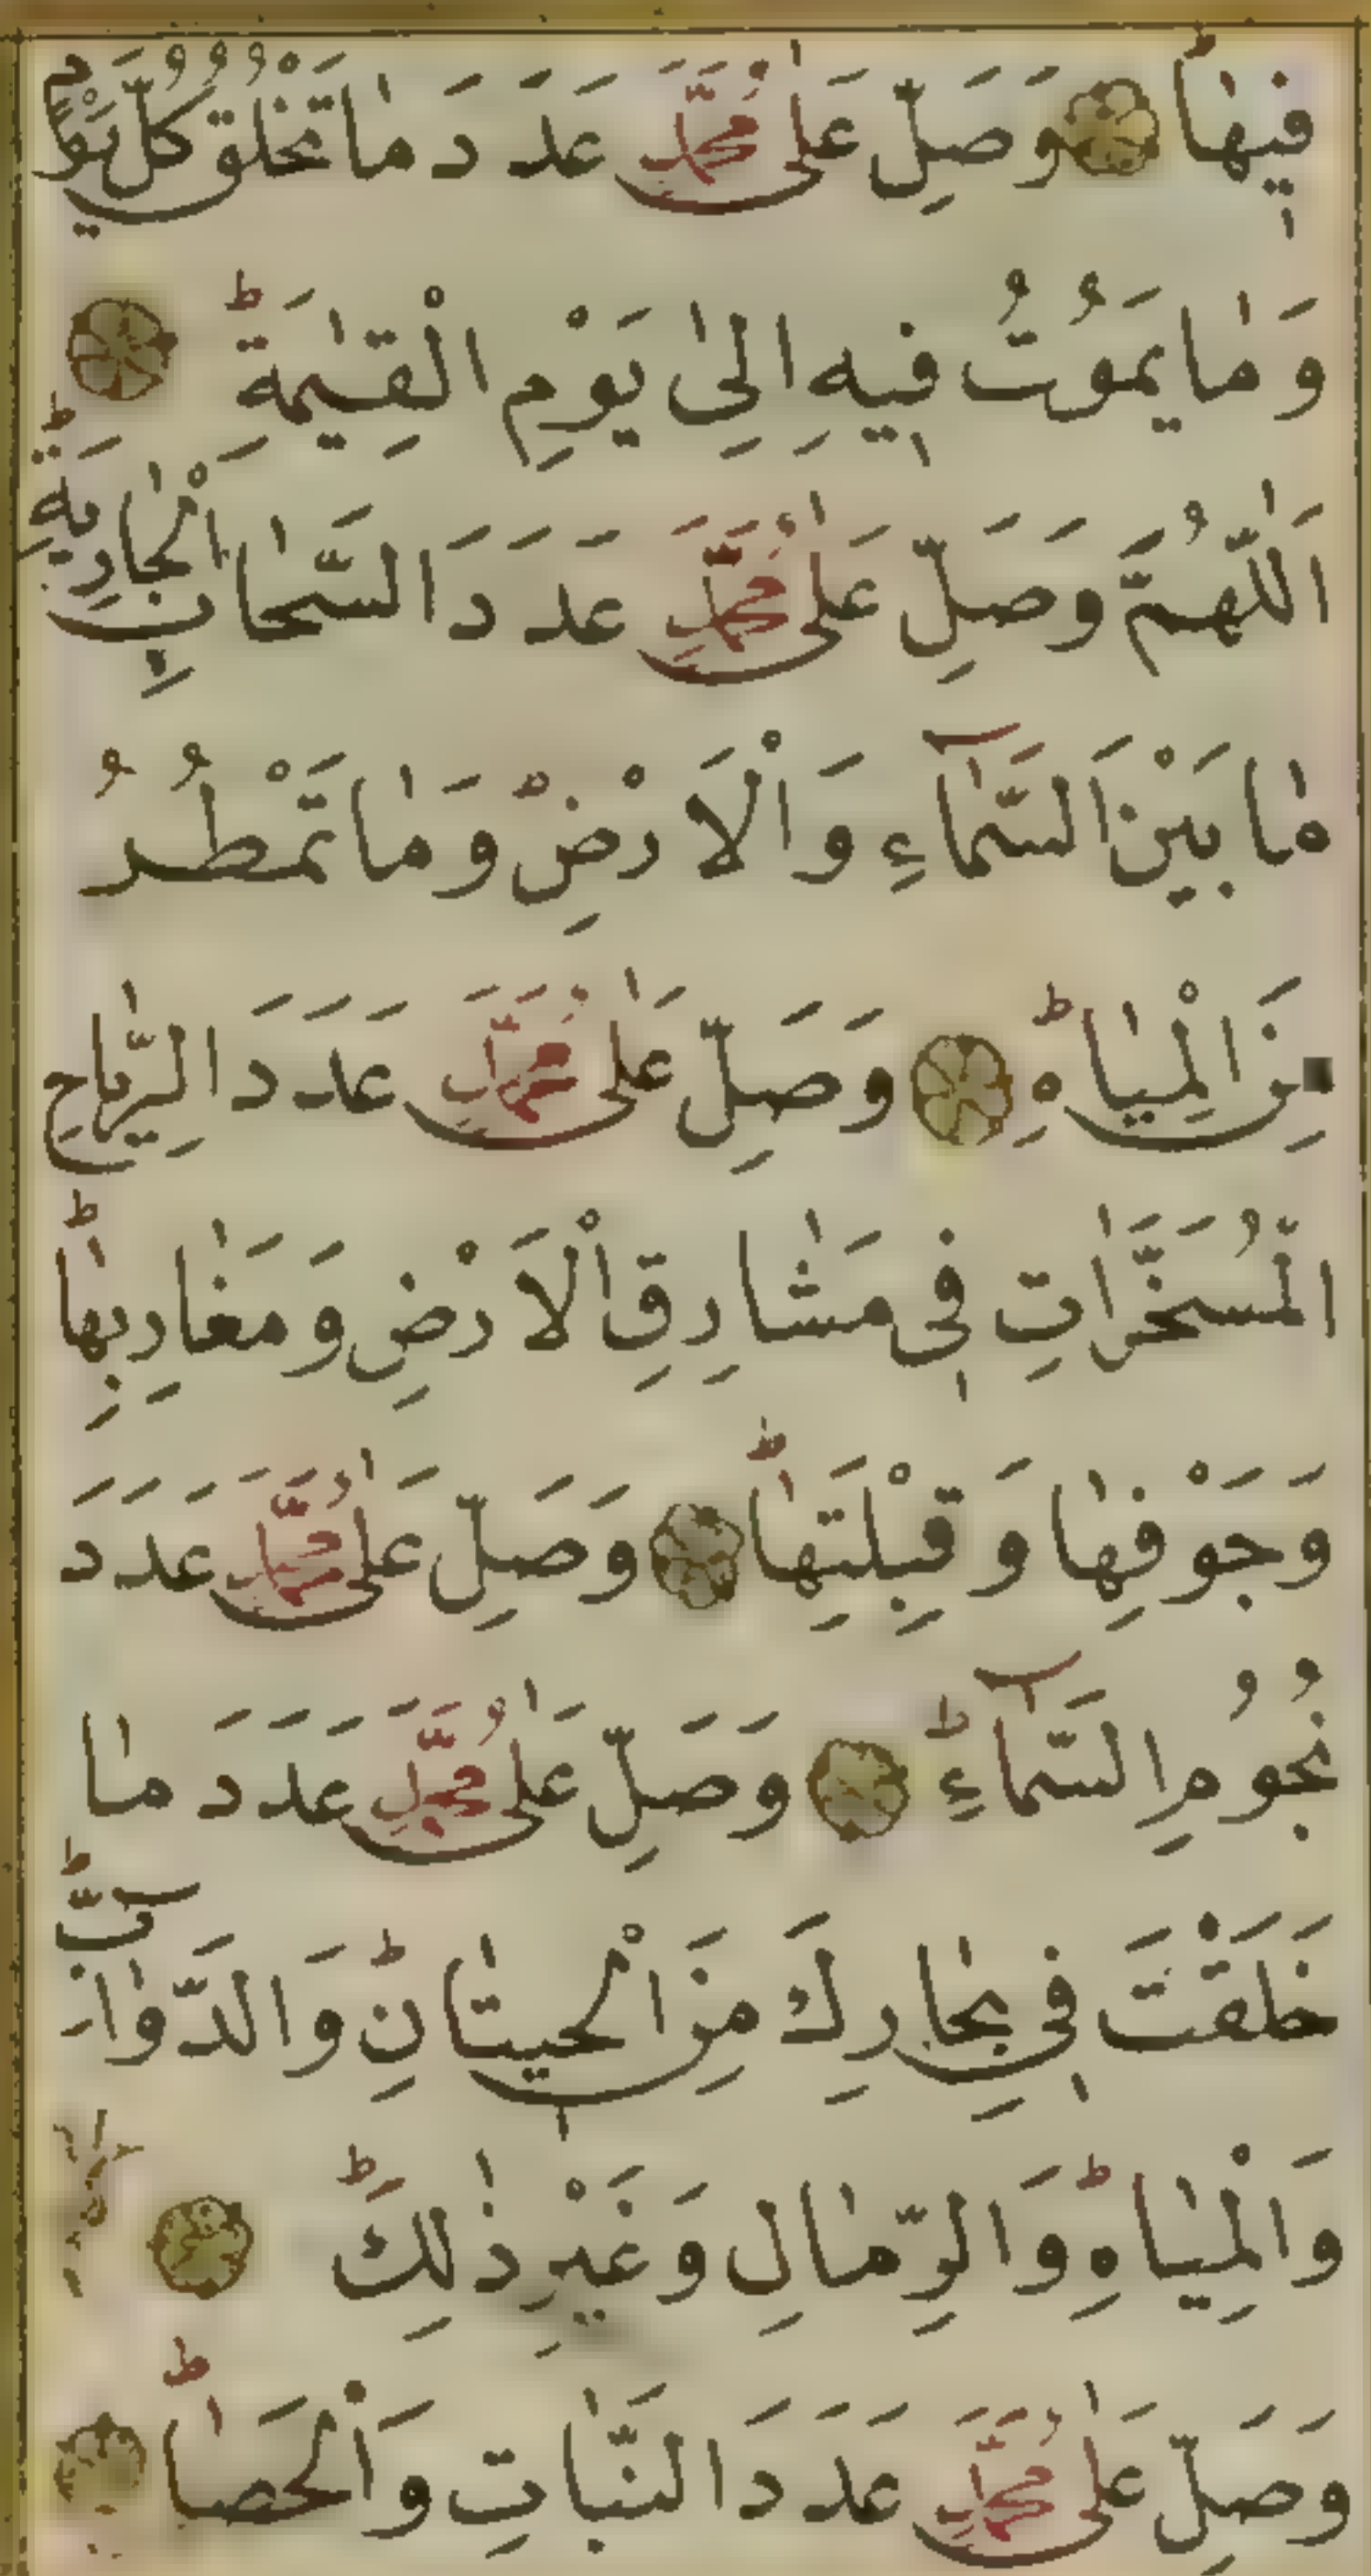 فِيهٰا وَصَلِّ عَلٰى مُحَمَّدٍ عَدَدَ مٰا تَخْلُقُ كُلَّ يَوْمٍ
وَمٰا يَمُوتُ فِيهِ اِلٰى يَوْمِ الْقِيٰمَةِ
اَللّٰهُمَّ وَصَلِّ عَلٰى مُحَمَّدٍ عَدَدَ السَّحٰابِ الْجٰارِيَةِ
مٰا بَيْنَ السَّمٰآءِ وَالْاَرْضِ وَمٰا تَمْطُرُ
مِنَ الْمِيٰاهِ وَصَلِّ عَلٰى مُحَمَّدٍ عَدَدَ الرِّيٰاحِ
الْمُسَخَّرٰاتِ فِى مَشٰارِقِ الْاَرْضِ وَمَغٰارِبِهٰا
وَجَوْفِهٰا وَقِبْلَتِهٰا وَصَلِّ عَلٰى مُحَمَّدٍ عَدَدَ
نُجُومِ السَّمٰآءِ وَصَلِّ عَلٰى مُحَمَّدٍ عَدَدَ مٰا
خَلَقْتَ فِى بِحٰارِكَ مِنَ الْحِيتٰانِ وَالدَّوٰآبِّ
وَالْمِيٰاهِ وَالرِّمٰالِ وَغَيْرِ ذٰلِكَ
وَصَلِّ عَلٰى مُحَمَّدٍ عَدَدَ النَّبٰاتِ وَالْحَصٰا